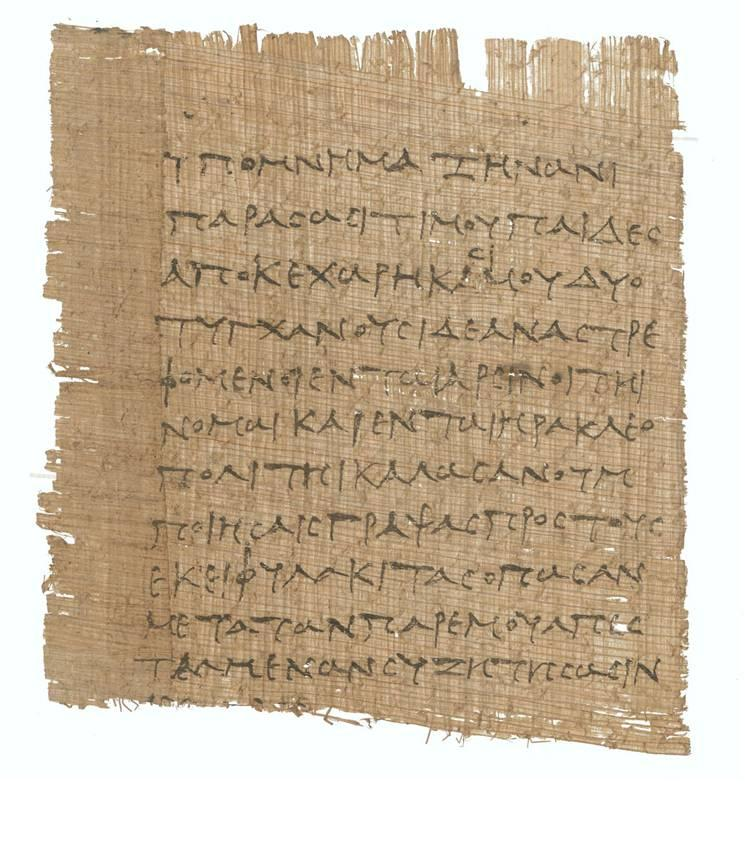 ΥΠΟΜΝΗΜΑ ΖΗΝΩΝΙ
ΠΑΡΑϹΩϹΙΤΙΜΟΥ ΠΑΙΔΕϹ
ΑΠΟΚΕΧΩΡΗΚΑϹΙΜΟΥ ΔΥΟ
ΤΥΓΧΑΝΟΥϹΙΔΕΑΝΑϹΤΡΕ
ΦΟΜΕΝΟΙΕΝΤΩΙΑΡϹΙΝΟΙΤΗΙ
ΝΟΜΩΙΚΑΙΕΝΤΩΙΗΡΑΚΛΕΟ
ΠΟΛΙΤΗΙΚΑΛΩϹΑΝΟΥΝ
ΠΟΙΗϹΑΙϹΓΡΑΨΑϹΠΡΟϹΤΟΥϹ
ΕΚΕΙΦΥΛΑΚΙΤΑϹΟΠΩϹΑΝ
ΜΕΤΑΤΩΝΠΑΡΕΜΟΥΑΠΕϹ
ΤΑΛΜΕΝΩΝϹΥΖΗΤΗϹΩϹΙΝ